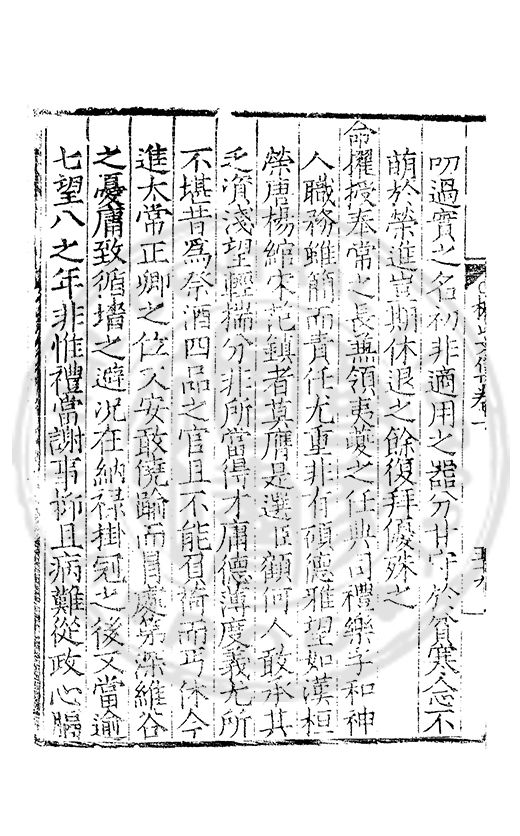 叨過實之名初非適用之器分甘守於貧寒念不
萌於榮進豈期休退之餘復拜優殊之
命擢授奉常之長兼領夷夔之任典司禮樂孚和神
人職務雖簡而責任尤重非有碩德雅望如漢桓
榮唐楊綰宋范鎮者莫膺是選臣顧何人敢承其
乏資淺望輕揣分非所當得才庸德薄度義尤所
不堪昔為祭酒四品之官且不能負荷而丐休今
進太常正卿之位又安敢僥踰而冒處第深維谷
之憂庸致循墻之避况在納祿掛冠之後又當逾
七望八之年非惟禮當謝事抑且病難從政心膈